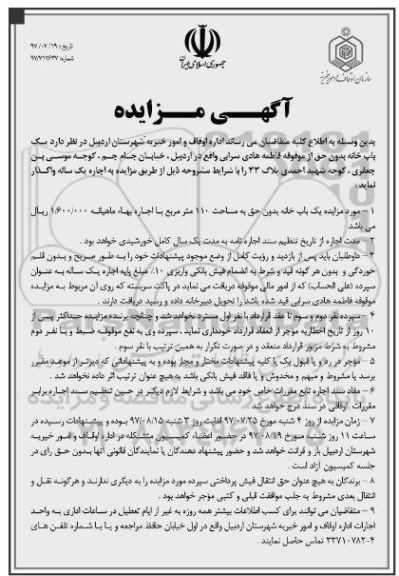 تاریخ : ۹۷/۰۷/۱۹
شماره: ۹۷/۷۱۱۶۳۷
جمهوری اسلامی ایران
سازمان اوقاف و امور خیریه
آگهی مزایده
بدین وسیله به اطلاع کلیه متقاضیان می رساند اداره اوقاف و امور خیریه شهرستان اردبیل در نظر دارد یک
باب خانه بدون حق از موقوفه فاطمه هادی سرابی واقع در اردبیل ، خیابان جام جم ، کوچه موسی بن
جعفری ، کوچه شهید احمدی پلاک ۳۳ را با شرایط مشروحه ذیل از طریق مزایده به اجاره یک ساله واگذار
نماید :
۱ – مورد مزایده یک باب خانه بدون حق به مساحت ۱۱۰ متر مربع با اجاره بهاء ماهیانه ۱/۶۰۰/۰۰۰ ریال
می باشد
۲ – مدت اجاره از تاریخ تنظیم سند اجاره نامه به مدت یک سال کامل خورشیدی خواهد بود .
۳ – داوطلبان باید پس از بازدید و رؤیت کامل از وضع موجود پیشنهادات خود را به طور صریح و بدون قلم
خوردگی و بدون هر گونه قید و شرط به انضمام فیش بانکی واریزی ۱۰٪ مبلغ پایه اجاره یک ساله به عنوان
سپرده (علی الحساب) که از امور مالی موقوفه دریافت می نماید در پاکت سربسته که روی آن مربوط به مزایده
موقوفه فاطمه هادی سرابی قید شده باشد را تحویل دبیرخانه داده و رسید دریافت دارند .
۴ – سپرده نفر دوم و سوم تا عقد قرارداد با نفر اول مسترد نخواهد شد و چنانچه برنده مزایده حداکثر پس از
۱۰ روز از تاریخ اخطاریه موجر از انعقاد قرارداد خودداری نماید ، سپرده وی به نفع موقوفه ضبط و با نفر دوم
مشروط به شرط مزبور قرارداد منعقد و در صورت تکرار به همین ترتیب با نفر سوم .
۵ – موجر در رد و یا قبول یک یا کلیه پیشنهادات مختار و مجاز بوده و به پیشنهاداتی که دیرتر از موعد مقرر
برسد یا مشروط و مبهم و مخدوش و یا فاقد فیش بانکی باشد به هیچ عنوان ترتیب اثر داده نخواهد شد .
۶ – مفاد سند اجاره تابع مقررات خاص خود می باشد و شرایط لازم دیگر در حین تنظیم سند اجاره برابر
مقررات اوقافی در سند درج خواهد شد .
۷ – زمان مزایده از روز ۴ شنبه مورخ ۹۷/۰۷/۲۵ لغایت روز ۳ شنبه ۹۷/۰۸/۱۵ بوده و پیشنهادات رسیده در
ساعت ۱۱ روز شنبه مورخ ۹۷/۰۸/۱۹ در حضور اعضاء کمیسیون متشکله در اداره اوقاف و امور خیریه
شهرستان اردبیل باز و قرائت خواهد شد و حضور پیشنهاد دهندگان یا نمایندگان قانونی آنها بدون حق رای در
جلسه کمیسیون آزاد است .
۸ – برندگان به هیچ عنوان حق انتقال فیش پرداختی سپرده مورد مزایده را به دیگری ندارند و هرگونه نقل و
انتقال بعدی مشروط به جلب موافقت قبلی و کتبی موجر خواهد بود .
۹ – متقاضیان می توانند برای کسب اطلاعات بیشتر همه روزه به غیر از ایام تعطیل در ساعات اداری به واحد
اجارات اداره اوقاف و امور خیریه شهرستان اردبیل واقع در اول خیابان حافظ مراجعه و یا با شماره تلفن های
۴-۳۳۷۱۰۷۸۲ تماس حاصل نمایند .